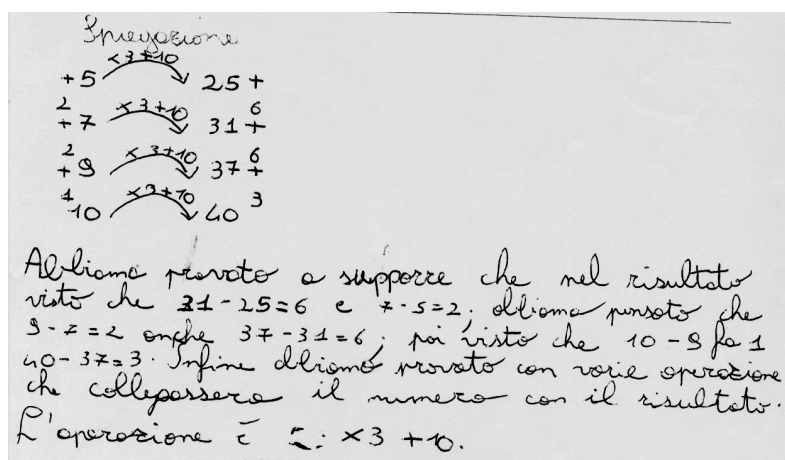 Spiegazione
x3+10
+5 25+
2 x3+10 6
+7 31+
2 x3+10 6
+9 37+
1 x3+10 3
10 40
Abbiamo provato a supporre che nel risultato
visto che 31-25=6 e 7-5=2, abbiamo pensato che
9-7=2 anche 37-31=6; poi visto che 10-9 fa 1
40-37=3. Infine abbiamo provato con varie operazione
che collegassero il numero con il risultato.
L'operazione è : x3 +10.